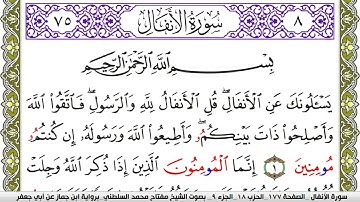 ٨
سُورَةُ الأَنفَالِ
٧٥
بِسْمِ اللَّهِ الرَّحْمَٰنِ الرَّحِيمِ
يَسْـَٔلُونَكَ عَنِ الْأَنفَالِ ۖ قُلِ الْأَنفَالُ لِلَّهِ وَالرَّسُولِ ۖ فَاتَّقُوا اللَّهَ
وَأَصْلِحُوا ذَاتَ بَيْنِكُمُ ۖ وَأَطِيعُوا اللَّهَ وَرَسُولَهُ إِن كُنتُمُ
مُومِنِينَ ١ إِنَّمَا الْمُومِنُونَ الَّذِينَ إِذَا ذُكِرَ اللَّهُ وَجِلَتْ
سورة الأنفال _ الصفحة ١٧٧ _ الحزب ١٨ _ الجزء ٩ _ بصوت الشيخ مفتاح محمد السلطني _ برواية ابن جماز عن أبي جعفر